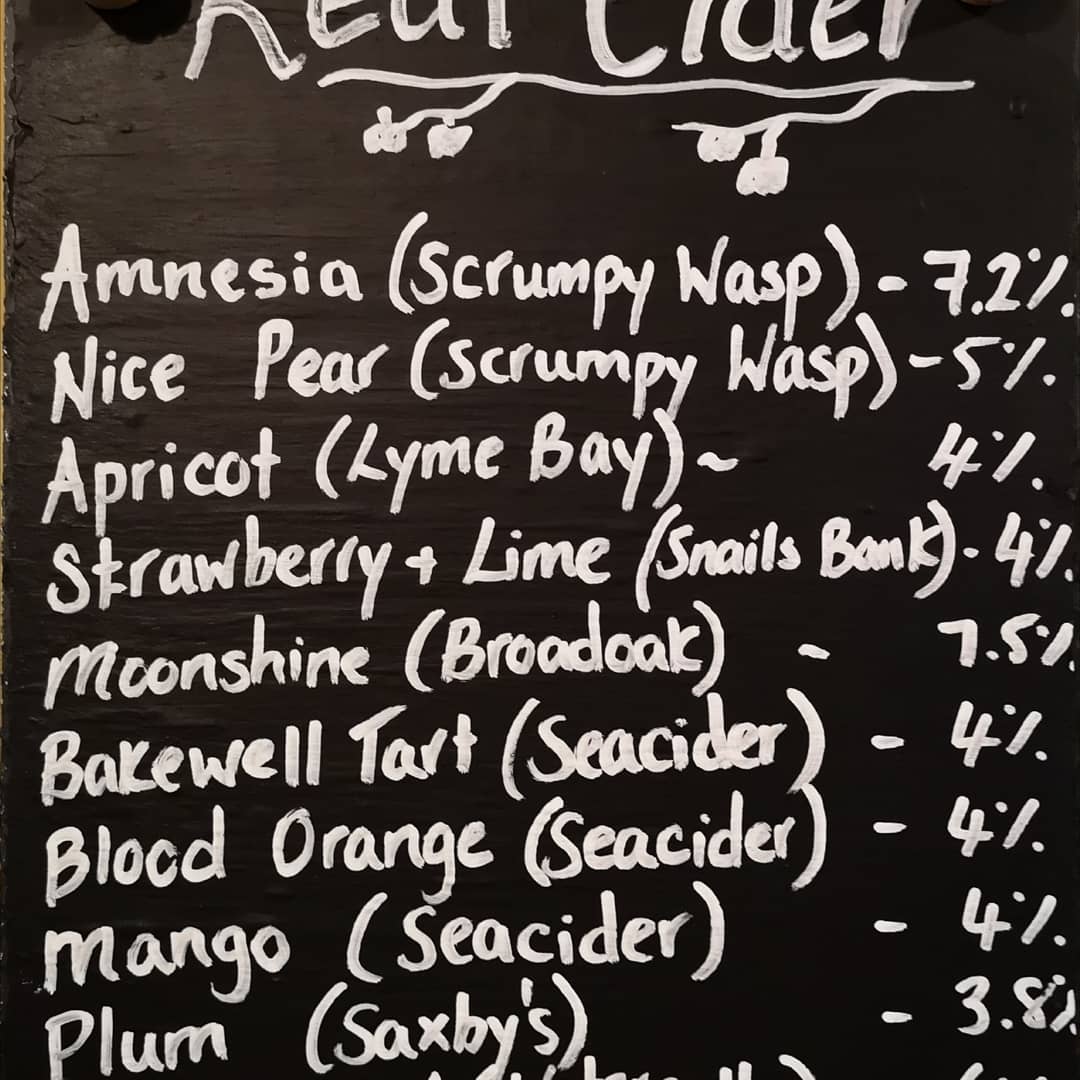 Real Cider
Amnesia (Scrumpy Wasp) - 7.2%.
Nice Pear (Scrumpy Wasp) - 5%.
Apricot (Lyme Bay) ~ 4%.
Strawberry + Lime (Snails Bank) - 4%.
Moonshine (Broadoak) - 7.5%.
Bakewell Tart (Seacider) - 4%.
Blood Orange (Seacider) - 4%.
Mango (Seacider) - 4%.
Plum (Saxby's) - 3.8%